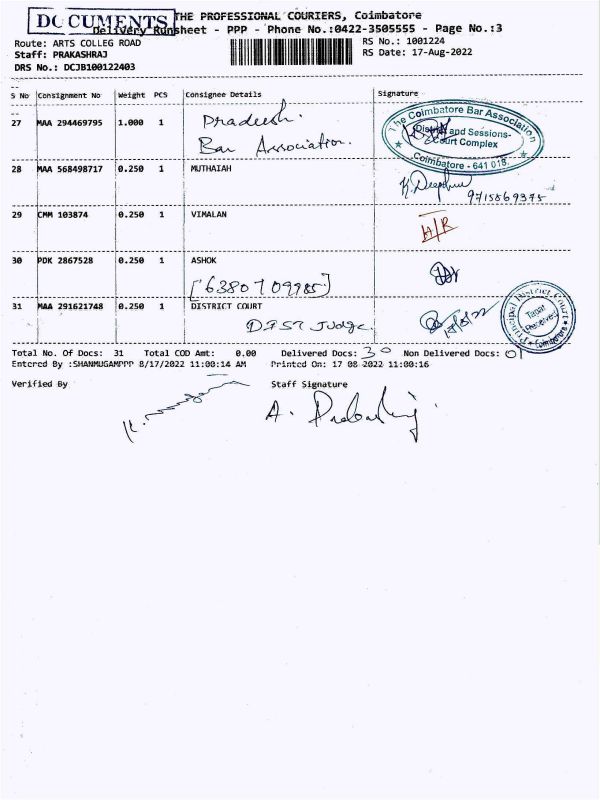 DOCUMENTS
THE PROFESSIONAL COURIERS, Coimbatore
Delivery Runsheet - PPP - Phone No.:0422-3505555 - Page No.:3
Route: ARTS COLLEG ROAD
RS No.: 1001224
Staff: PRAKASHRAJ
RS Date: 17-Aug-2022
DRS No.: DCJB100122403
S No Consignment No Weight PCS Consignee Details Signature
27 MAA 294469795 1.000 1 Pradeesh.
Bar Association.
The Coimbatore Bar Association
District and Sessions-
Court Complex
Coimbatore - 641 018.
28 MAA 568498717 0.250 1 MUTHAIAH
K. Deephu
9715869375
29 CMM 103874 0.250 1 VIMALAN
H/R
30 PDK 2867528 0.250 1 ASHOK
[6380709985]
31 MAA 291621748 0.250 1 DISTRICT COURT
DIST Judge
Principal District Court
Tapal
Received
Coimbatore
Total No. Of Docs: 31 Total COD Amt: 0.00 Delivered Docs: 30 Non Delivered Docs: 01
Entered By :SHANMUGAMPPP 8/17/2022 11:00:14 AM Printed On: 17 08 2022 11:00:16
Verified By Staff Signature